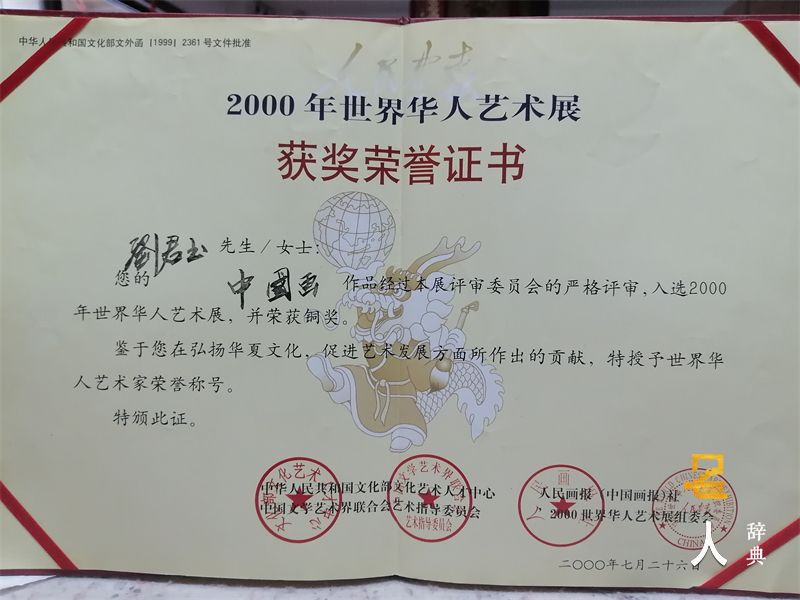 中华人民共和国文化部文外函［1999］2361号文件批准
2000年世界华人艺术展
获奖荣誉证书
劉君玉 先生/女士：
您的 中國画 作品经过本展评审委员会的严格评审，入选2000
年世界华人艺术展，并荣获铜奖。
鉴于您在弘扬华夏文化，促进艺术发展方面所作出的贡献，特授予世界华
人艺术家荣誉称号。
特颁此证。
中华人民共和国文化部文化艺术人才中心
中国文学艺术界联合会艺术指导委员会
人民画报（中国画报）社
2000世界华人艺术展组委会
艺术指导委员会
CHINA
二〇〇〇年七月二十六日
名人辞典